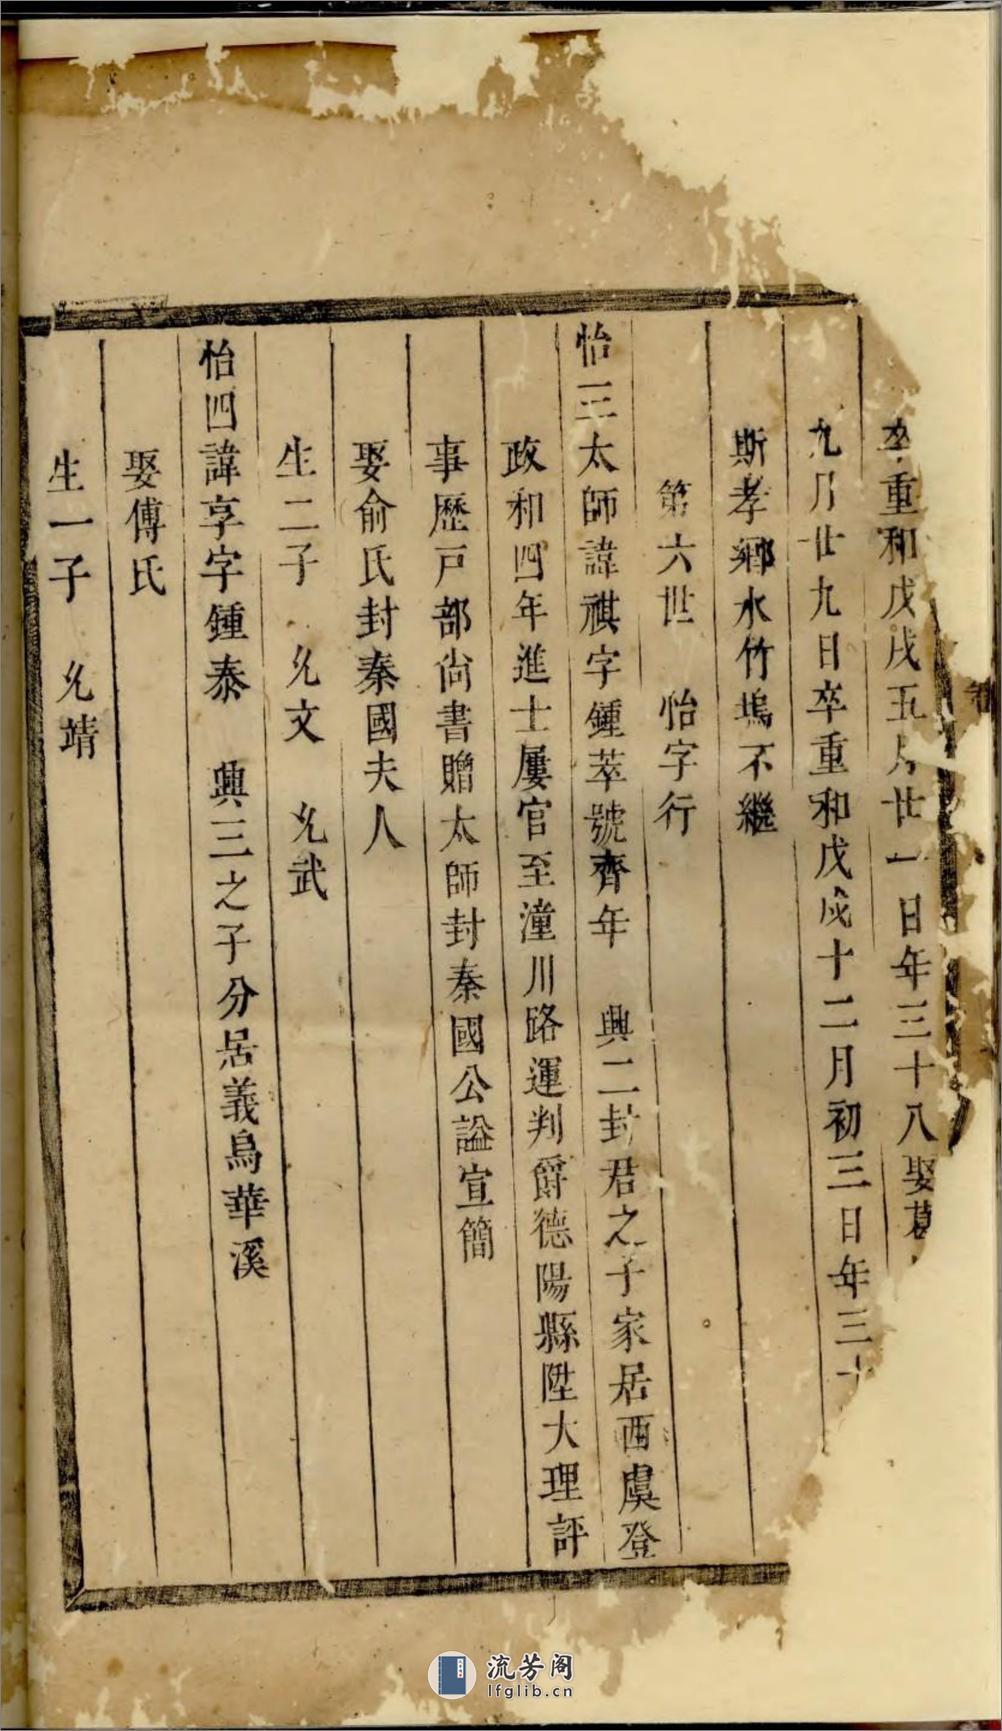 卒重和戊戌五月廿一日年三十八娶葛
九月廿九日卒重和戊戌十二月初三日年三十
斯孝鄉水竹塢不繼
第六世　怡字行
怡三太師諱祺字鍾萃號齊年　典二封君之子家居西虞登
政和四年進士屢官至潼川路運判爵德陽縣陞大理評
事歷戸部尙書贈太師封秦國公謚宣簡
娶俞氏封秦國夫人
生二子　允文　允武
怡四諱享字鍾泰　典三之子分居義烏華溪
娶傅氏
生一子　允靖
流芳阁
lfglib.cn